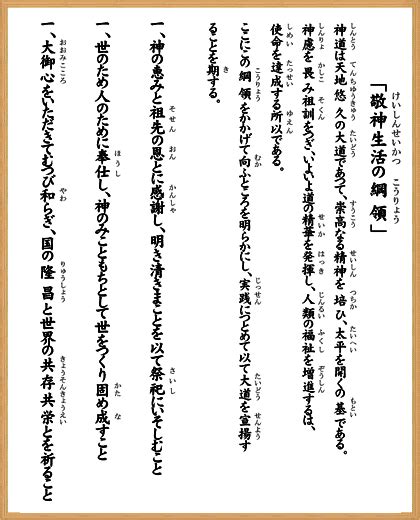 「敬神生活の綱領」
神道は天地悠久の大道であつて、崇高なる精神を培ひ、太平を開くの基である。
神慮を畏み祖訓をつぎ、いよいよ道の精華を発揮し、人類の福祉を増進するは、
使命を達成する所以である。
ここにこの綱領をかかげて向ふところを明らかにし、実践につとめて以て大道を宣揚す
ることを期する。
一、神の恵みと祖先の恩とに感謝し、明き清きまことを以て祭祀にいそしむこと
一、世のため人のために奉仕し、神のみこともちとして世をつくり固め成すこと
一、大御心をいただきてむつび和らぎ、国の隆昌と世界の共存共栄とを祈ること